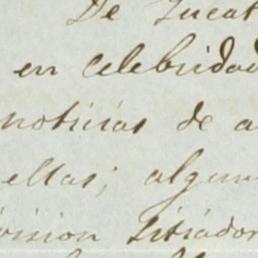 De Yucat
en celebridad
noticias de a
ellas; algun
ivision sitiador